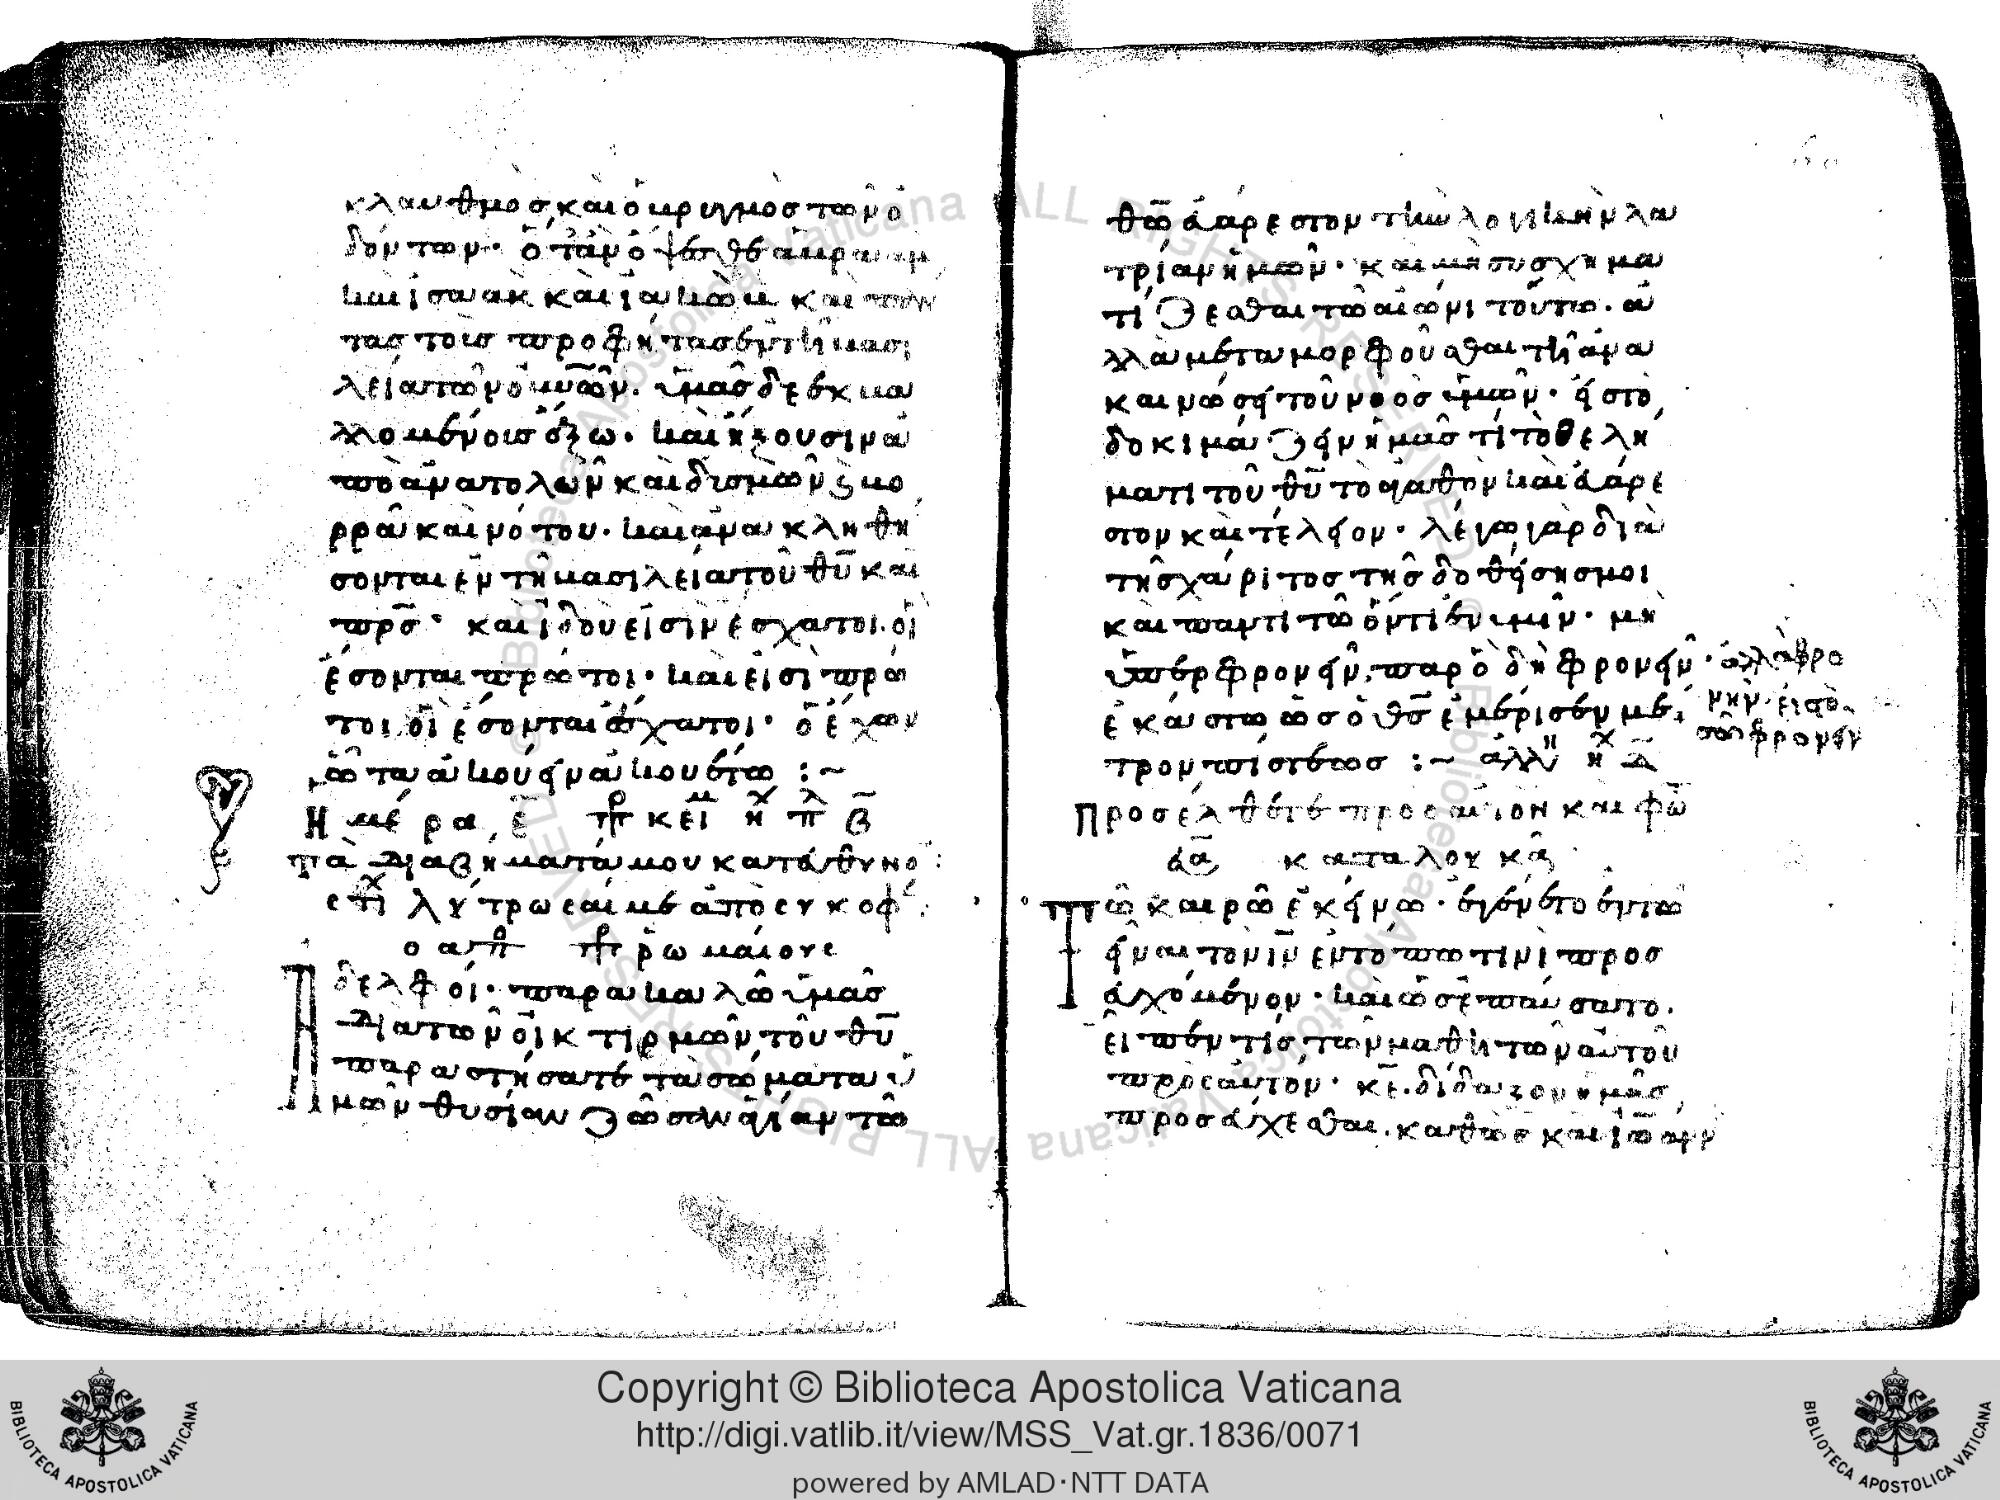 κλαυθμὸς καὶ ὁ βρυγμὸς τῶν ὀ
δόντων· ὅταν ὄψεσθε ἀβραὰμ
καὶ ἰσαὰκ καὶ ἰακὼβ καὶ πάν
τας τοὺς προφήτας ἐν τῆ βασι
λεία τῶν οὐνῶν. ὑμᾶς δὲ ἐκβα
λλομένους ἔξω. καὶ ἥξουσιν ἀ
πὸ ἀνατολῶν καὶ δυσμῶν ϛ βο
ρρᾶ καὶ νότου. καὶ ἀνακληθή
σονται ἐν τῆ βασιλεία τοῦ θυ καὶ
πρσ· καὶ ἰδοὺ εἰσὶν ἔσχατοι οἳ
ἔσονται πρῶτοι. καὶ εἰσὶ πρῶ
τοι οἳ ἔσονται ἔσχατοι· ὁ ἔχων
ὦτα ἀκούειν ἀκουέτω :~
Ημέρα, ε κει π β
τὰ διαβήματά μου κατεύθυνο
στι λύτρωσαί με ἀπὸ συκοφ
ο απ πρ ρωμαίους
Ἀδελφοί· παρακαλῶ ὑμᾶς
διὰ τῶν οἰκτιρμῶν τοῦ θυ
παραστήσατε τὰ σώματα ὑ
μῶν θυσίαν ζῶσαν ἁγίαν τῶ
θῶ εὐάρεστον τὴν λογικὴν λα
τρίαν ἡμῶν· καὶ μὴ συσχημα
τίζεσθαι τῶ αἰῶνι τούτω. ἀ
λλὰ μεταμορφοῦσθαι τῆ ἀνα
καινώσει τοῦ νοὸς ὑμῶν· εἰς τὸ
δοκιμάζειν ἡμᾶς τί τὸ θελή
ματι τοῦ θυ τὸ ἀγαθὸν καὶ εὐάρε
στον καὶ τέλειον· λέγω γὰρ διὰ
τῆς χάριτος τῆς δοθείσης μοι
καὶ παντὶ τῶ ὄντι ἐν ὑμῖν· μὴ
ὑπερφρονεῖν παρ ὃ δεῖ φρονεῖν· ἀλλὰ φρο
νεῖν εἰς τὸ
σωφρονεῖν
ἑκάστω ὡς ὁ θς ἐμέρισεν μέ
τρον πίστεως :~ ἀλλη
Προσέλθετε προς αὐτὸν καὶ φω
ευα κατα λουκᾶ
Τῶ καιρῶ ἐκείνω· ἐγένετο ἐν τῶ
εἶναι τὸν ιν ἐν τόπω τινὶ προσ
ευχόμενον· καὶ ὡς ἐπαύσατο.
εἶπέν τις τῶν μαθητῶν αὐτοῦ
πρὸς αὐτόν· κε. δίδαξον ἡμᾶς
προσεύχεσθαι. καθὼς καὶ ἰωάνν
Copyright © Biblioteca Apostolica Vaticana
http://digi.vatlib.it/view/MSS_Vat.gr.1836/0071
powered by AMLAD·NTT DATA
BIBLIOTECA APOSTOLICA VATICANA
BIBLIOTECA APOSTOLICA VATICANA